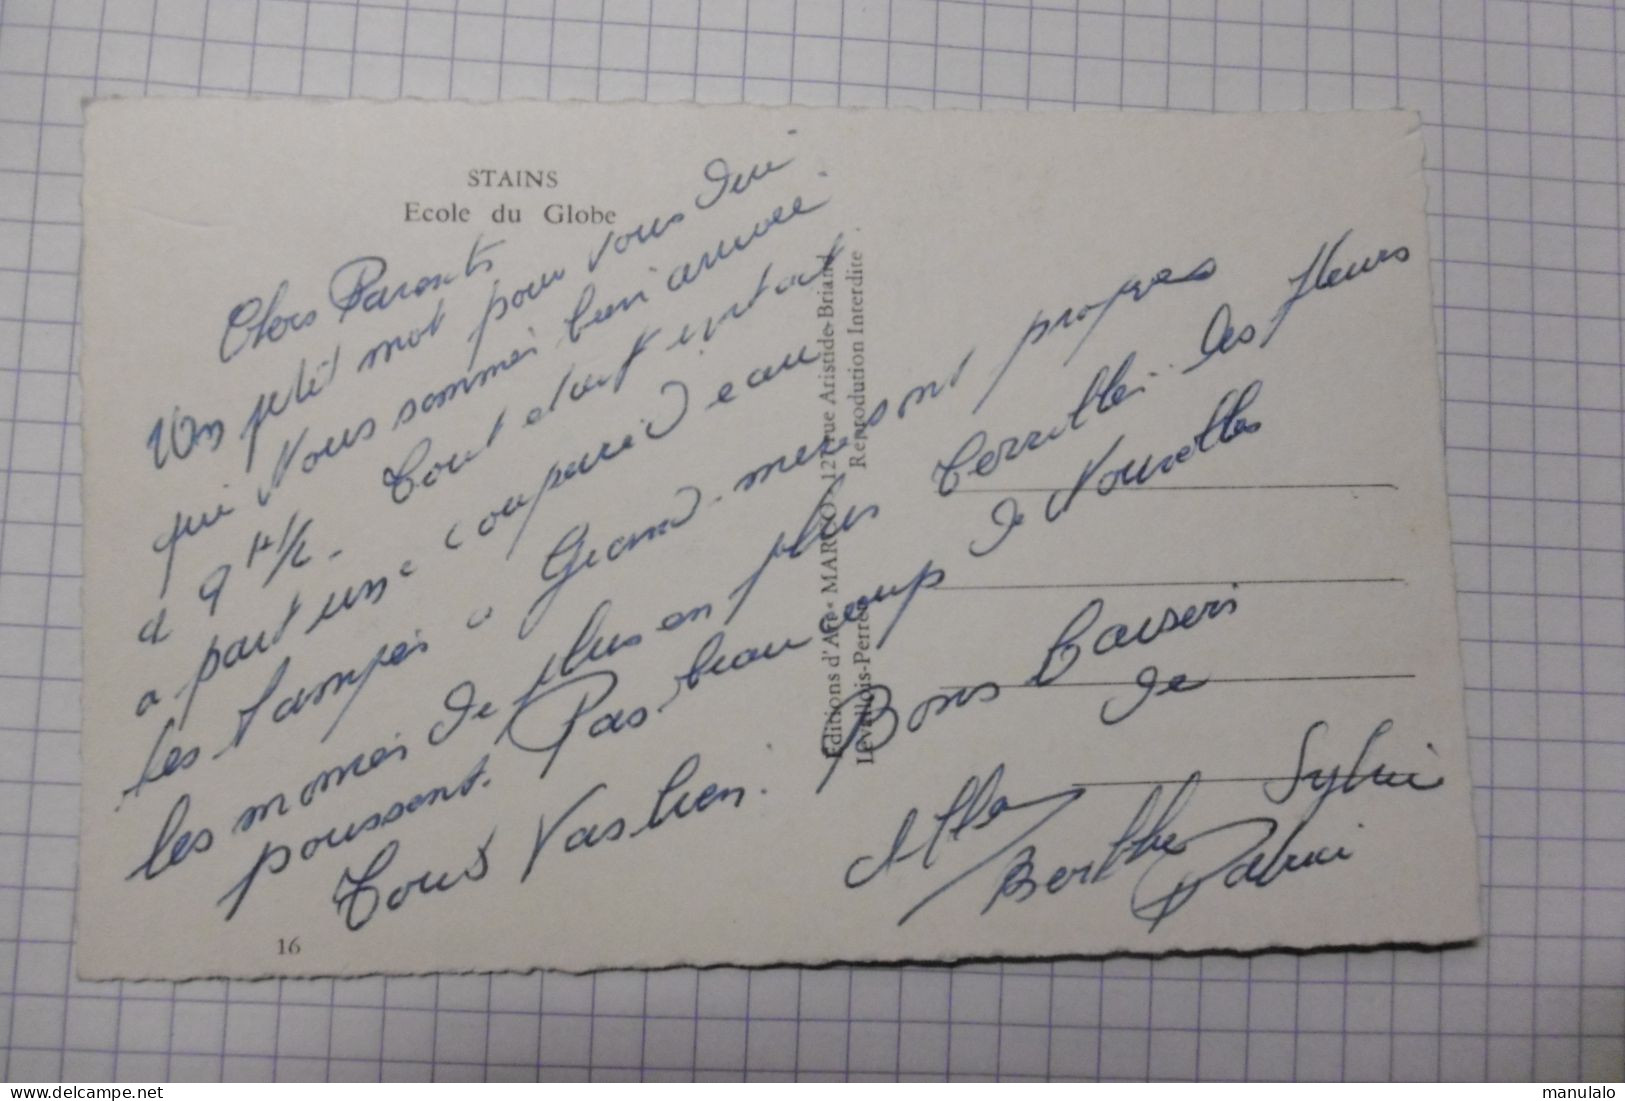 STAINS
Ecole du Globe
Chers Parents
Un petit mot pour vous dire
que Nous sommes bien arrivée.
a 9 H 1/2. Tout etait intact
a part une coupure d'eau
les lampes a Grand-mere sont propres
les momes de plus en plus Terrible. les fleurs
poussent. Pas beaucoup de Nouvelles
Tous Vas bien. Bons Baisers
de
Sylvie
Berthe
16
Editions d'Art « MARCO », 127 rue Aristide-Briand
Levallois-Perret Reproduction Interdite
delcampe.net
manulalo